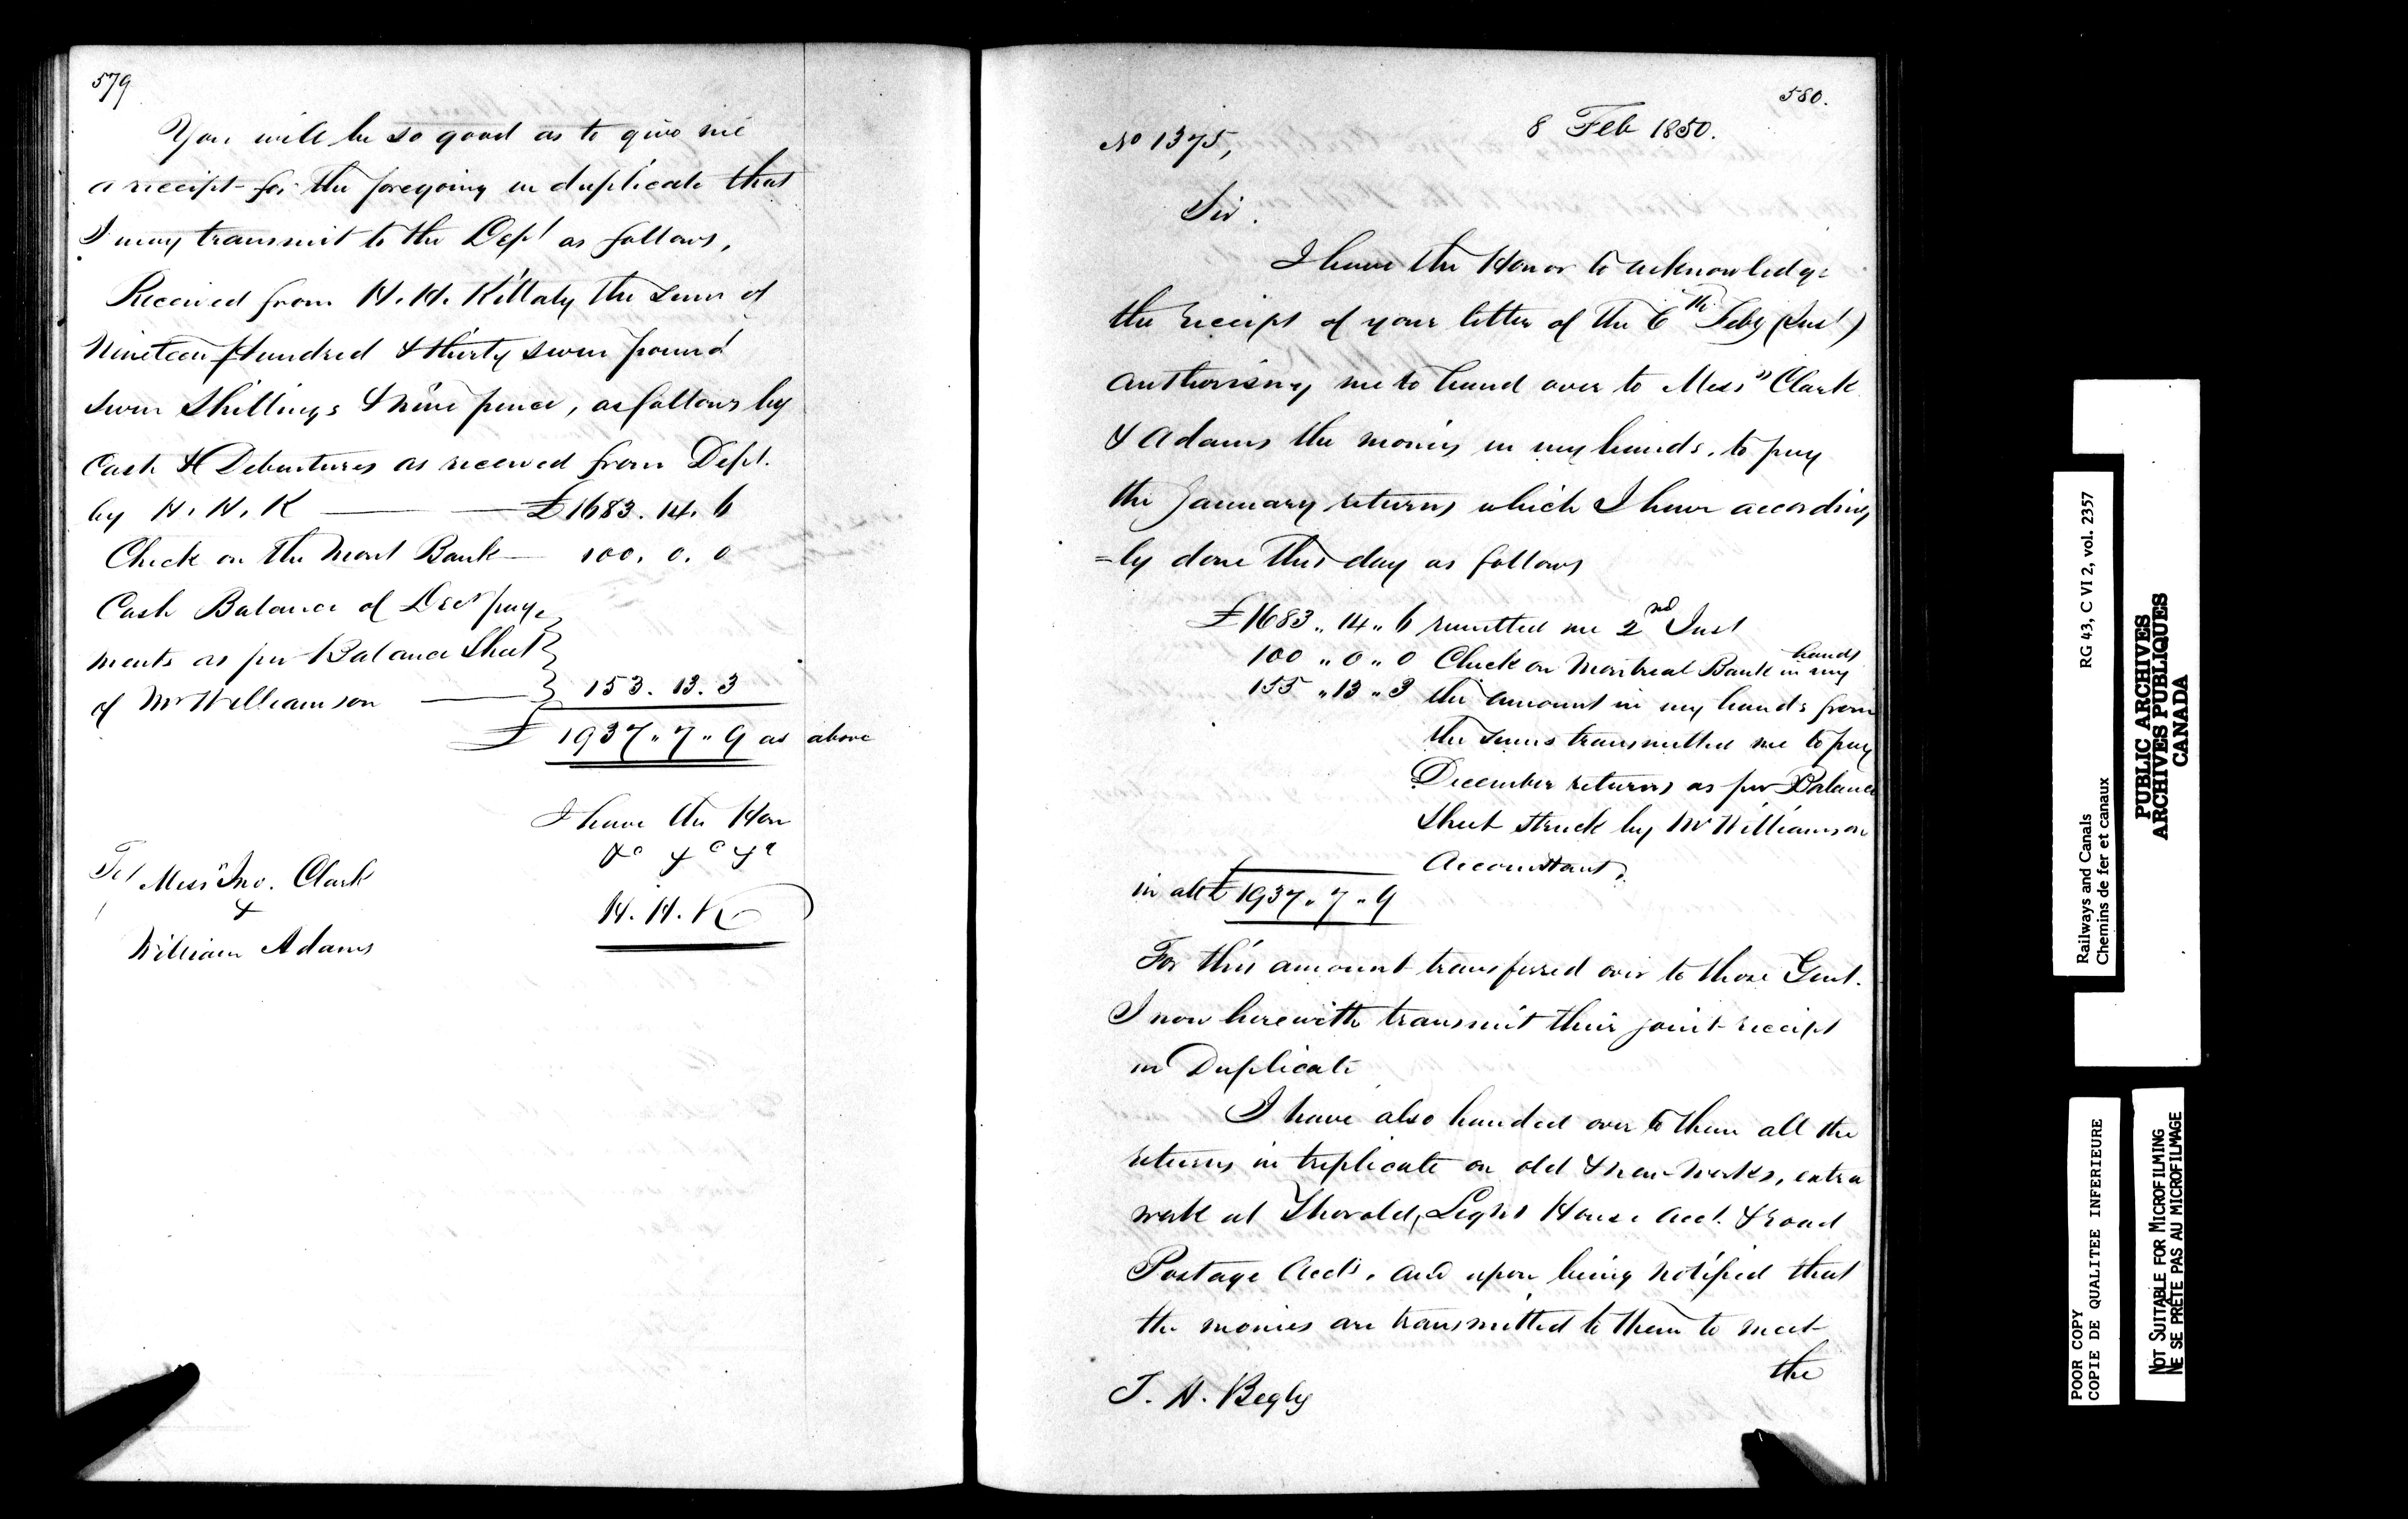 579
You will be so good as to give me
a receipt for the foregoing in duplicate that
I may transmit to the Dept as follows,
Received from H. H. Killaly the sum of
Nineteen Hundred & thirty seven pound
seven Shillings & nine pence, as follows by
Cash & Debentures as received from Dept.
by H. H. K — £1683. 14. 6
Check on the Mont Bank — 100. 0. 0
Cash Balance of Decr pay=
ments as per Balance Sheet
of Mr Williamson — 153. 13. 3
£ 1937 " 7 " 9 as above
I have the Hon
&c &c &c
H. H. K
To/ Messrs Jno. Clark
&
William Adams
580.
8 Feb 1850.
No 1375,
Sir.
I have the Honor to acknowledge
the receipt of your letter of the 6th Feby (Inst)
authorising me to hand over to Messrs Clark
& Adams the monies in my hands, to pay
the January returns which I have according
=ly done this day as follows
£1683 " 14 " 6 remitted me 2nd Inst
100 " 0 " 0 Check on Montreal Bank in my hands
153 " 13 " 3 the amount in my hands from
the sums transmitted me to pay
December returns as per Balance
Sheet struck by Mr Williamson
Accountant.
in all £ 1937 " 7 " 9
For this amount transferred over to those Gent.
I now herewith transmit their joint receipt
in Duplicate
I have also handed over to them all the
returns in triplicate on old & new works, extra
work at Thorold, Light House Acct. & road
Postage Accts. and upon being notified that
the monies are transmitted to them to meet
the
T. A. Begly
Railways and Canals
Chemins de fer et canaux
RG 43, C VI 2, vol. 2357
PUBLIC ARCHIVES
ARCHIVES PUBLIQUES
CANADA
POOR COPY
COPIE DE QUALITEE INFERIEURE
NOT SUITABLE FOR MICROFILMING
NE SE PRÊTE PAS AU MICROFILMAGE